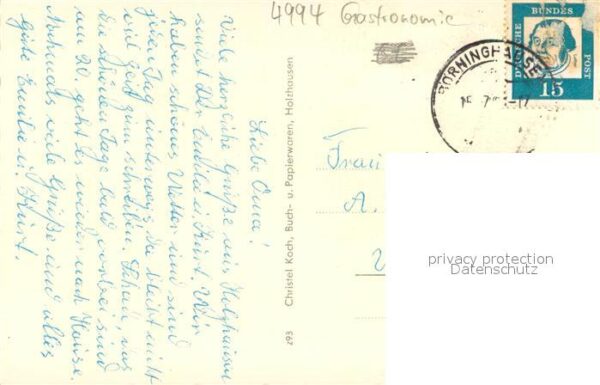 4994 Gastronomie
DEUTSCHE BUNDES POST
15
BÖRNINGHAUSEN
Liebe Oma!
Viele herzliche Grüße aus Holzhausen
sendet Dir Emilie u. Kurt. Wir
haben schönes Wetter und sind
jeden Tag unterwegs, da bleibt nicht
viel Zeit zum schreiben. Schade, das
die schönen Tage bald vorbei sind
am 20. geht es wieder nach Hause.
Nochmals viele Grüße und alles
gute Emilie u. Kurt.
293 Christel Koch, Buch- u. Papierwaren, Holzhausen
Frau
A.
privacy protection
Datenschutz